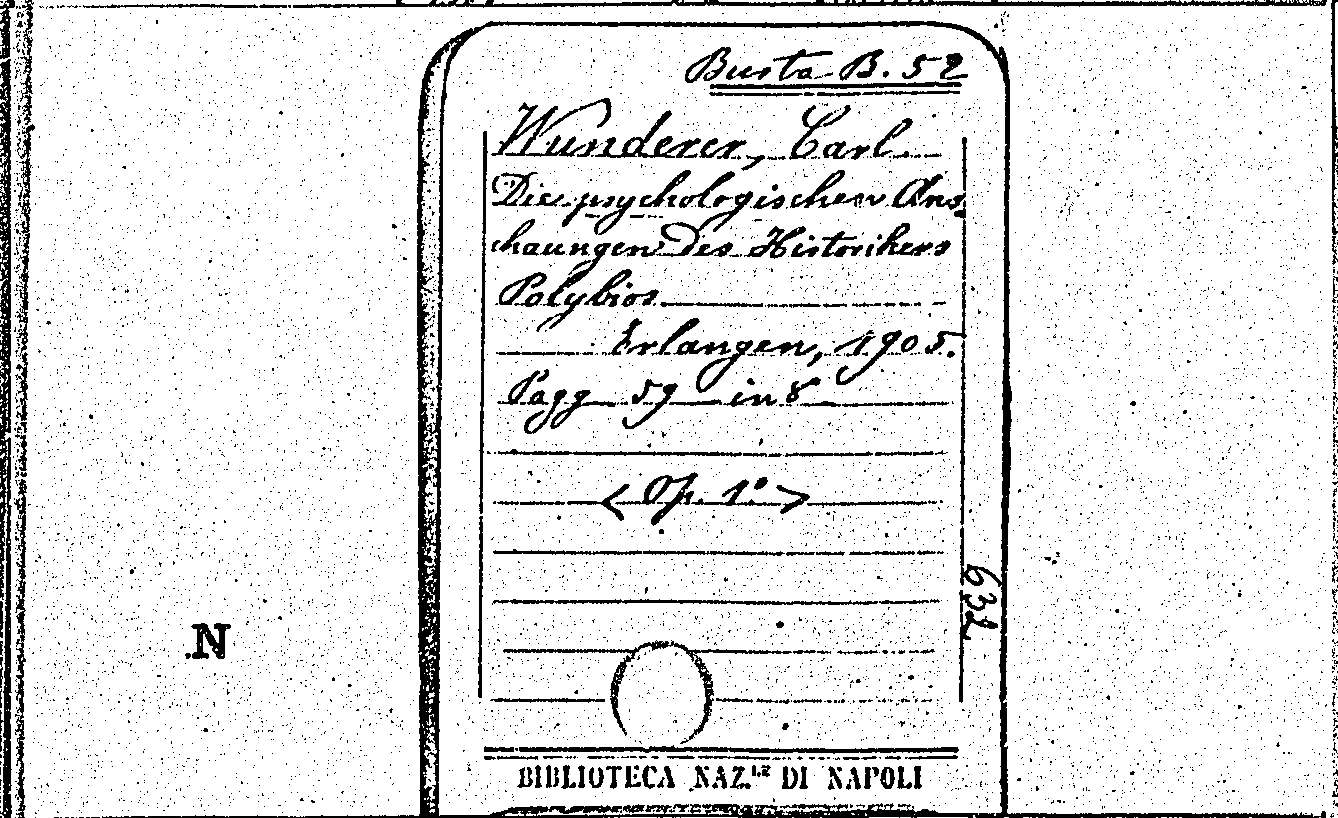 Busta B. 52
Wunderer, Carl.
Die psychologischen Ans,
chaungen des Historikers
Polybios
Erlangen, 1905.
Pagg 59 in 8
< Op. 1° >
632
N
BIBLIOTECA NAZ.LE DI NAPOLI